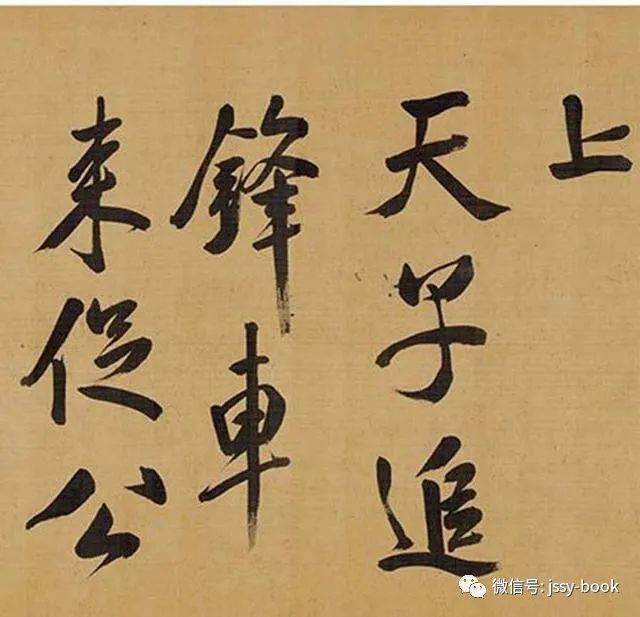 上
天子追
鋒車
来促公
微信号: jssy-book